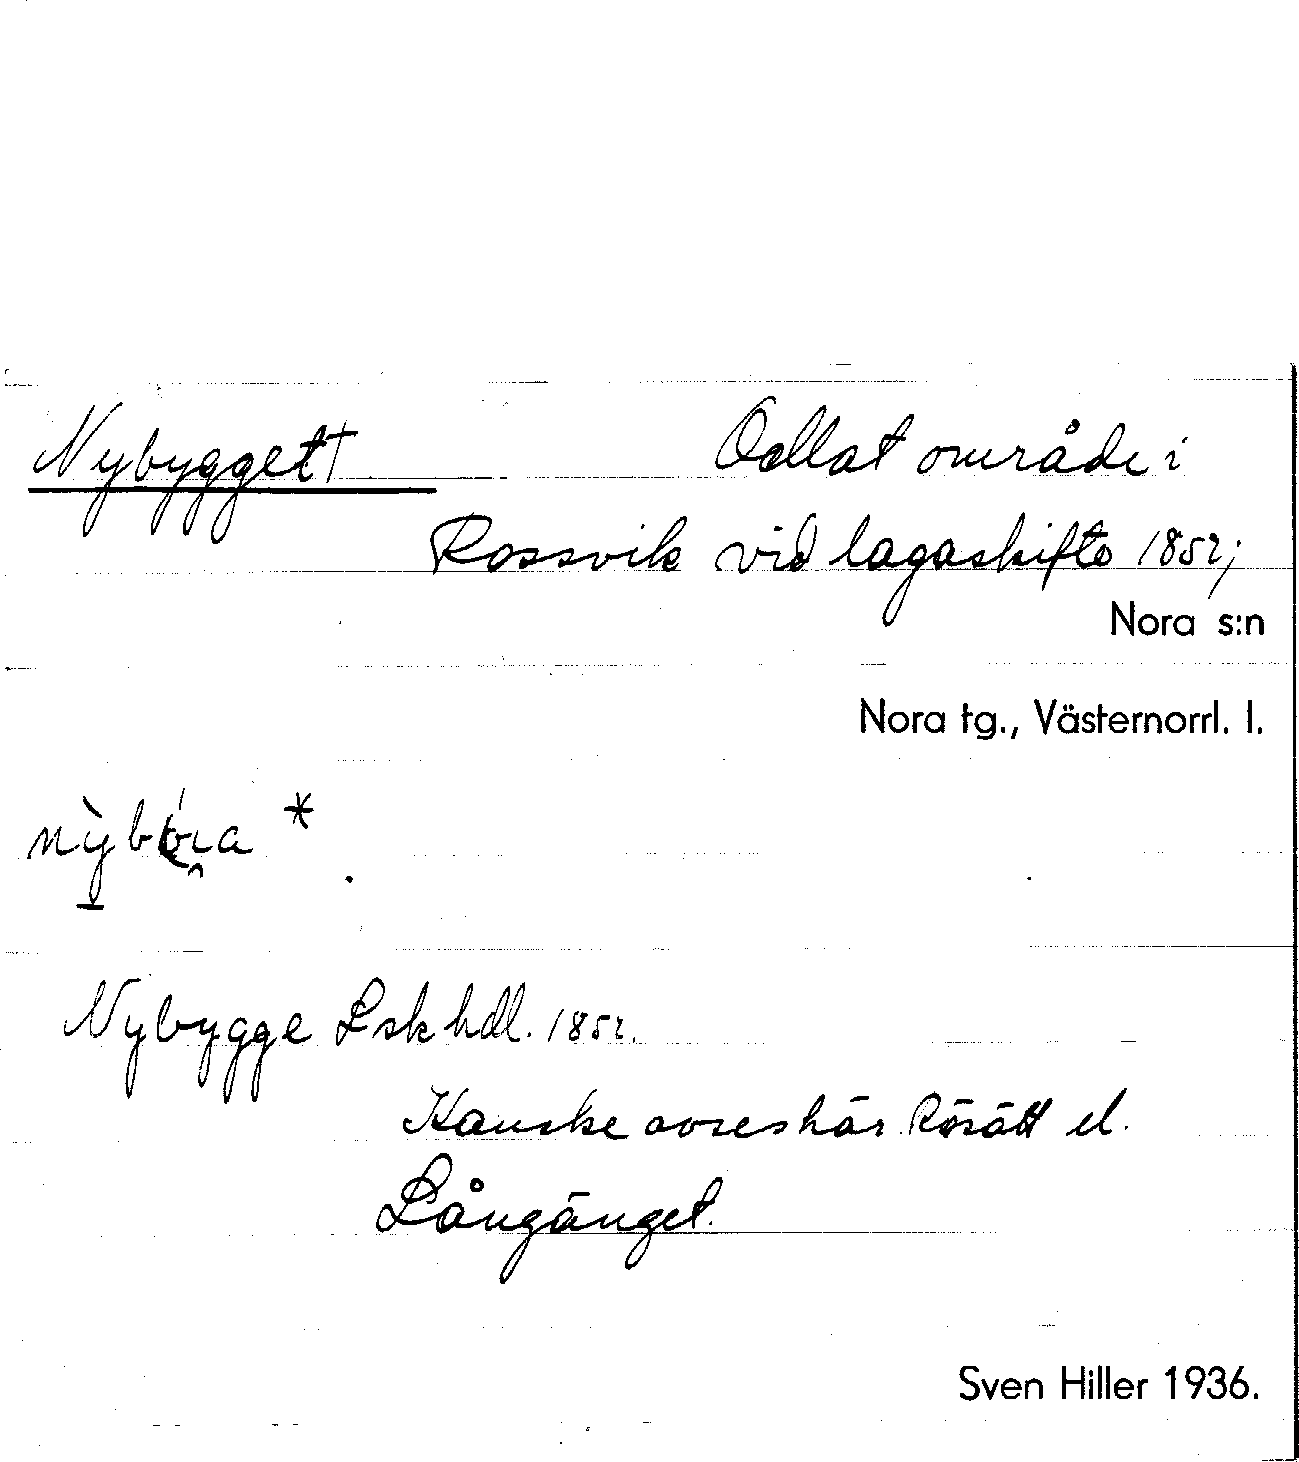 Nybygget† Odlat område i
Rossvik vid lagaskifte 1852;
Nora s:n
Nora tg., Västernorrl. l.
Nybygge Lsk hdl. 1852.
Kanske avses här Rösätt el.
Långänget.
Sven Hiller 1936.